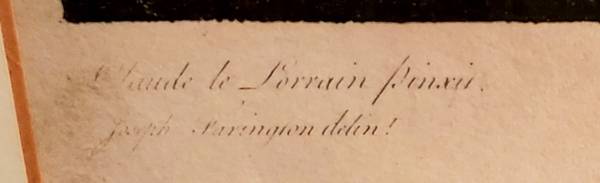 Claude le Lorrain pinxit.
Joseph Farington delin!